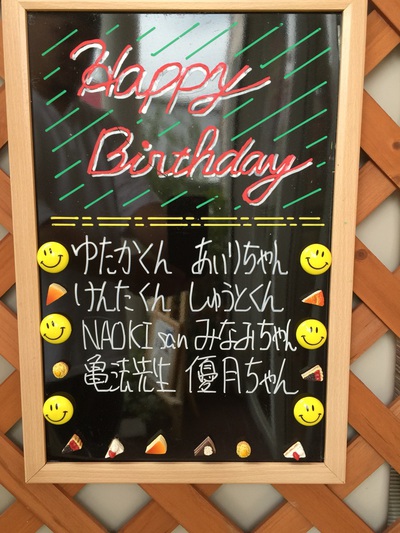 Happy
Birthday
ゆたかくん あいりちゃん
けんたくん しゅうとくん
NAOKI san みなみちゃん
亀法先生 優月ちゃん